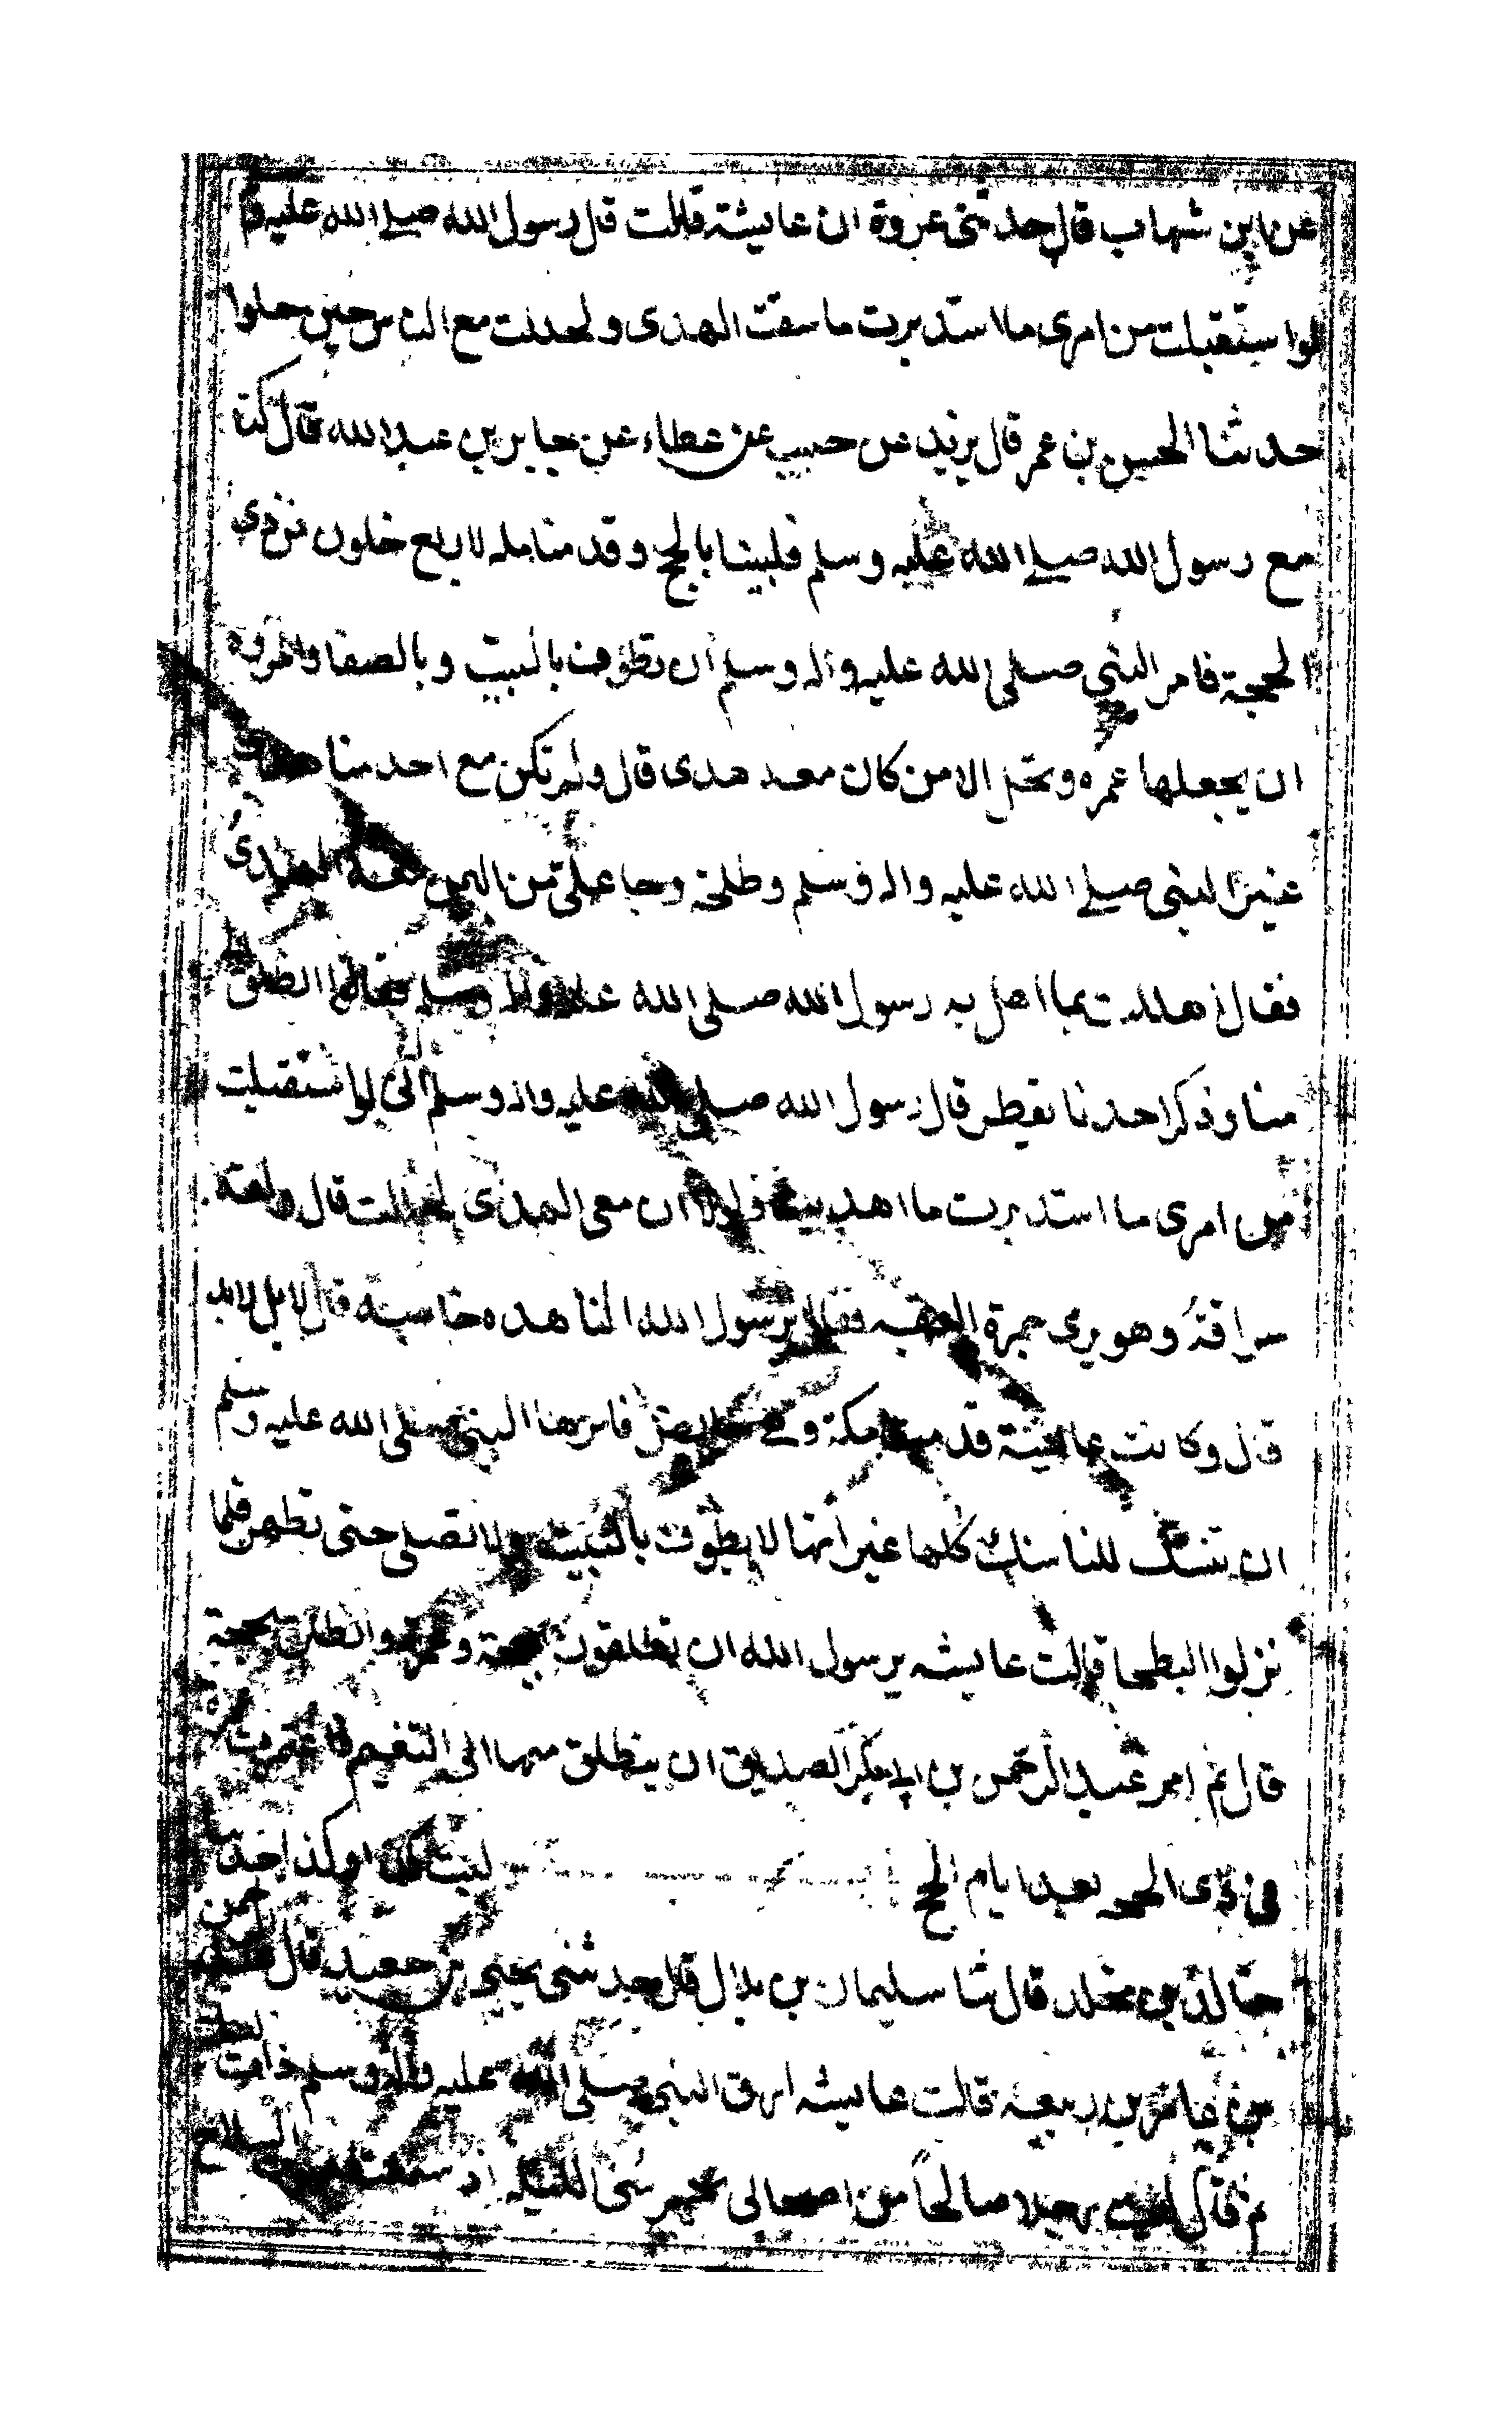 عن ابن شهاب قال حدثنى عروة ان عايشة قالت قال رسول الله صلى الله عليه و
لو استقبلت من امرى ما استدبرت ما سقت الهدى ولحللت مع الناس حين حلوا
حدثنا الحسن بن عمر قال يزيد عن حبيب عن عطاء عن جابر بن عبد الله قال كنا
مع رسول الله صلى الله عليه وسلم فلبينا بالحج وقدمنا مكه لاربع خلون من ذى
الحجة فامر النبي صلى الله عليه واله وسلم ان نطوف بالبيت وبالصفا والمروه
ان يجعلها عمره ونحل الا من كان معه هدى قال ولم تكن مع احد منا هدى
غير النبى صلى الله عليه واله وسلم وطلحة وجا على من اليمن معه الهدى
فقال اهللت بما اهل به رسول الله صلى الله عليه واله وسلم فقالوا انطلق الى
منا وذكر احدنا يقطر قال رسول الله صلى الله عليه واله وسلم انى لو استقبلت
من امرى ما استدبرت ما اهديت ولولا ان معى الهدى لحللت قال ولقيه
سراقة وهو يرى جمرة العقبه فقال يرسول الله النا هذه خاصة قال لا بل لابد
قال وكانت عايشة قدمت مكة وهى حايض فامرها النبى صلى الله عليه وسلم
ان تنسك المناسك كلها غير انها لا يطوف بالبيت ولا تصلى حتى تطهر فلما
نزلوا البطحا قالت عايشه يرسول الله ان ينطلقون بحجة وعمرة وانطلق بحجة
قال ثم امر عبد الرحمن بن ابى بكر الصديق ان ينطلق معها الى التنعيم فاعتمرت عمرة
فى ذى الحجه بعد ايام الحج ليت كذا وكذا حدثنا
خالد بن مخلد قال ثنا سليمان بن بلال قال حدثنى يحيى بن سعيد قال سمعت
بن عامر بن ربيعة قالت عايشه ارق النبى صلى الله عليه واله وسلم ذات ليلة
ثم قال ليت رجلا صالحاً من اصحابى يحرسنى الليله اذ سمعنا صوت السلاح